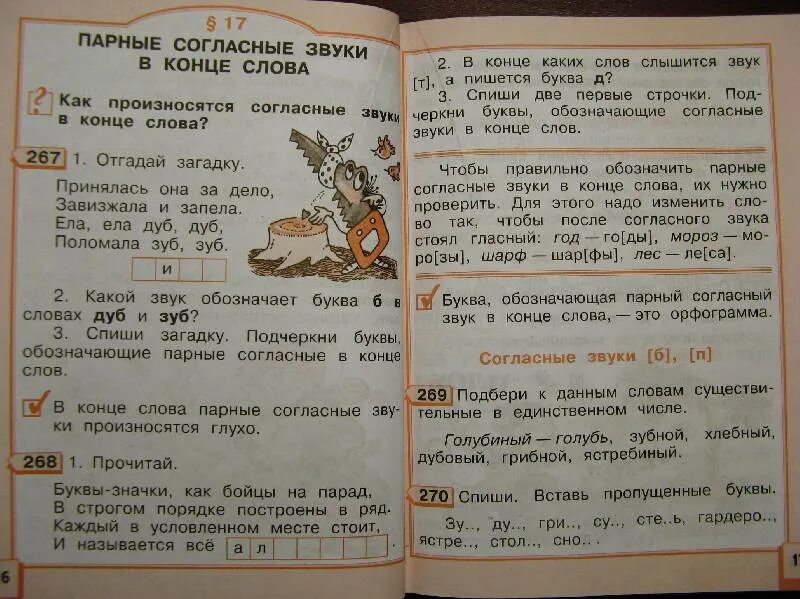 § 17
ПАРНЫЕ СОГЛАСНЫЕ ЗВУКИ
В КОНЦЕ СЛОВА
? Как произносятся согласные звуки
в конце слова?
267 1. Отгадай загадку.
Принялась она за дело,
Завизжала и запела.
Ела, ела дуб, дуб,
Поломала зуб, зуб.
и
2. Какой звук обозначает буква б в
словах дуб и зуб?
3. Спиши загадку. Подчеркни буквы,
обозначающие парные согласные в конце
слов.
В конце слова парные согласные зву-
ки произносятся глухо.
268 1. Прочитай.
Буквы-значки, как бойцы на парад,
В строгом порядке построены в ряд.
Каждый в условленном месте стоит,
И называется всё а л
6
2. В конце каких слов слышится звук
[т], а пишется буква д?
3. Спиши две первые строчки. Под-
черкни буквы, обозначающие согласные
звуки в конце слов.
Чтобы правильно обозначить парные
согласные звуки в конце слова, их нужно
проверить. Для этого надо изменить сло-
во так, чтобы после согласного звука
стоял гласный: год — го[ды], мороз — мо-
ро[зы], шарф — шар[фы], лес — ле[са].
Буква, обозначающая парный согласный
звук в конце слова, — это орфограмма.
Согласные звуки [б], [п]
269 Подбери к данным словам существи-
тельные в единственном числе.
Голубиный — голубь, зубной, хлебный,
дубовый, грибной, ястребиный.
270 Спиши. Вставь пропущенные буквы.
Зу.., ду.., гри.., су.., сте..ь, гардеро..,
ястре.., стол.., сно.. .
1